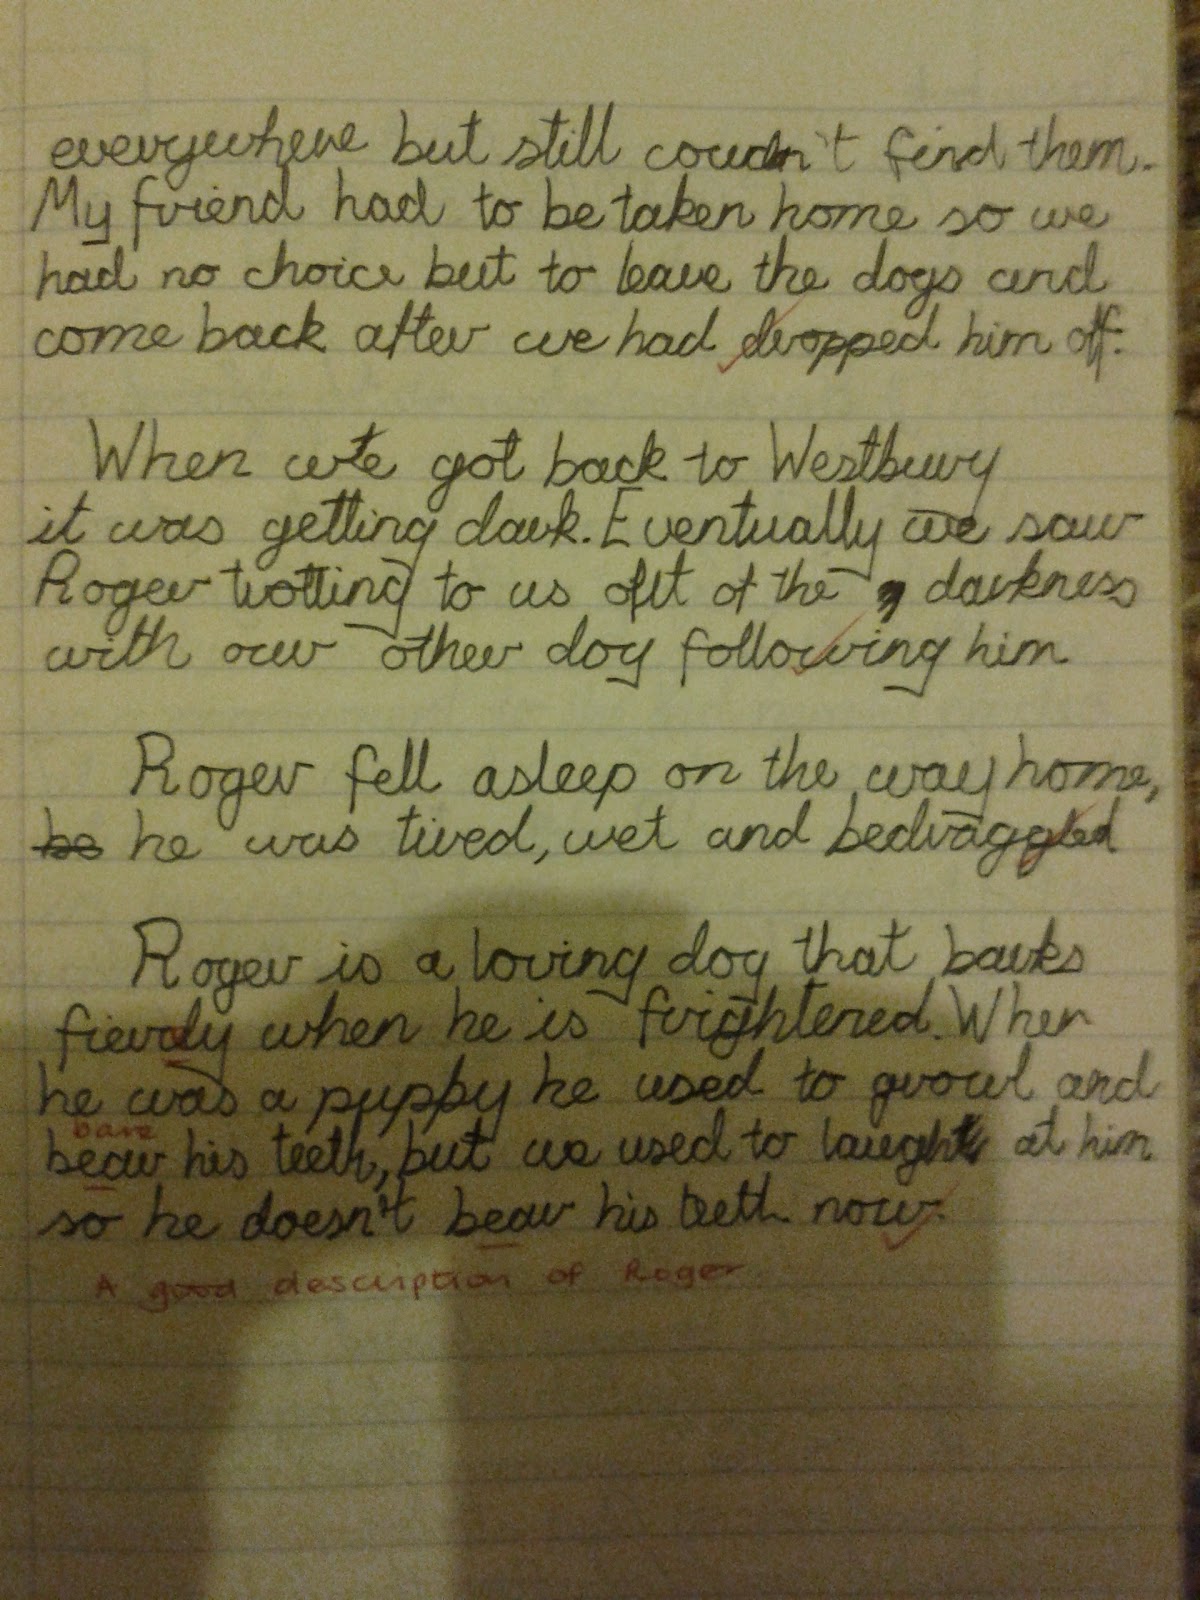 everywhere but still couldn't find them.
My friend had to be taken home so we
had no choice but to leave the dogs and
come back after we had dropped him off.
When we got back to Westbury
it was getting dark. Eventually we saw
Roger trotting to us of the darkness
with our other dog following him
Roger fell asleep on the way home,
he he was tired, wet and bedraggled
Roger is a loving dog that barks
fiercly when he is frightened. When
he was a puppy he used to growl and
bare
bear his teeth, but we used to laugh at him
so he doesn't bear his teeth now.
A good description of Roger.